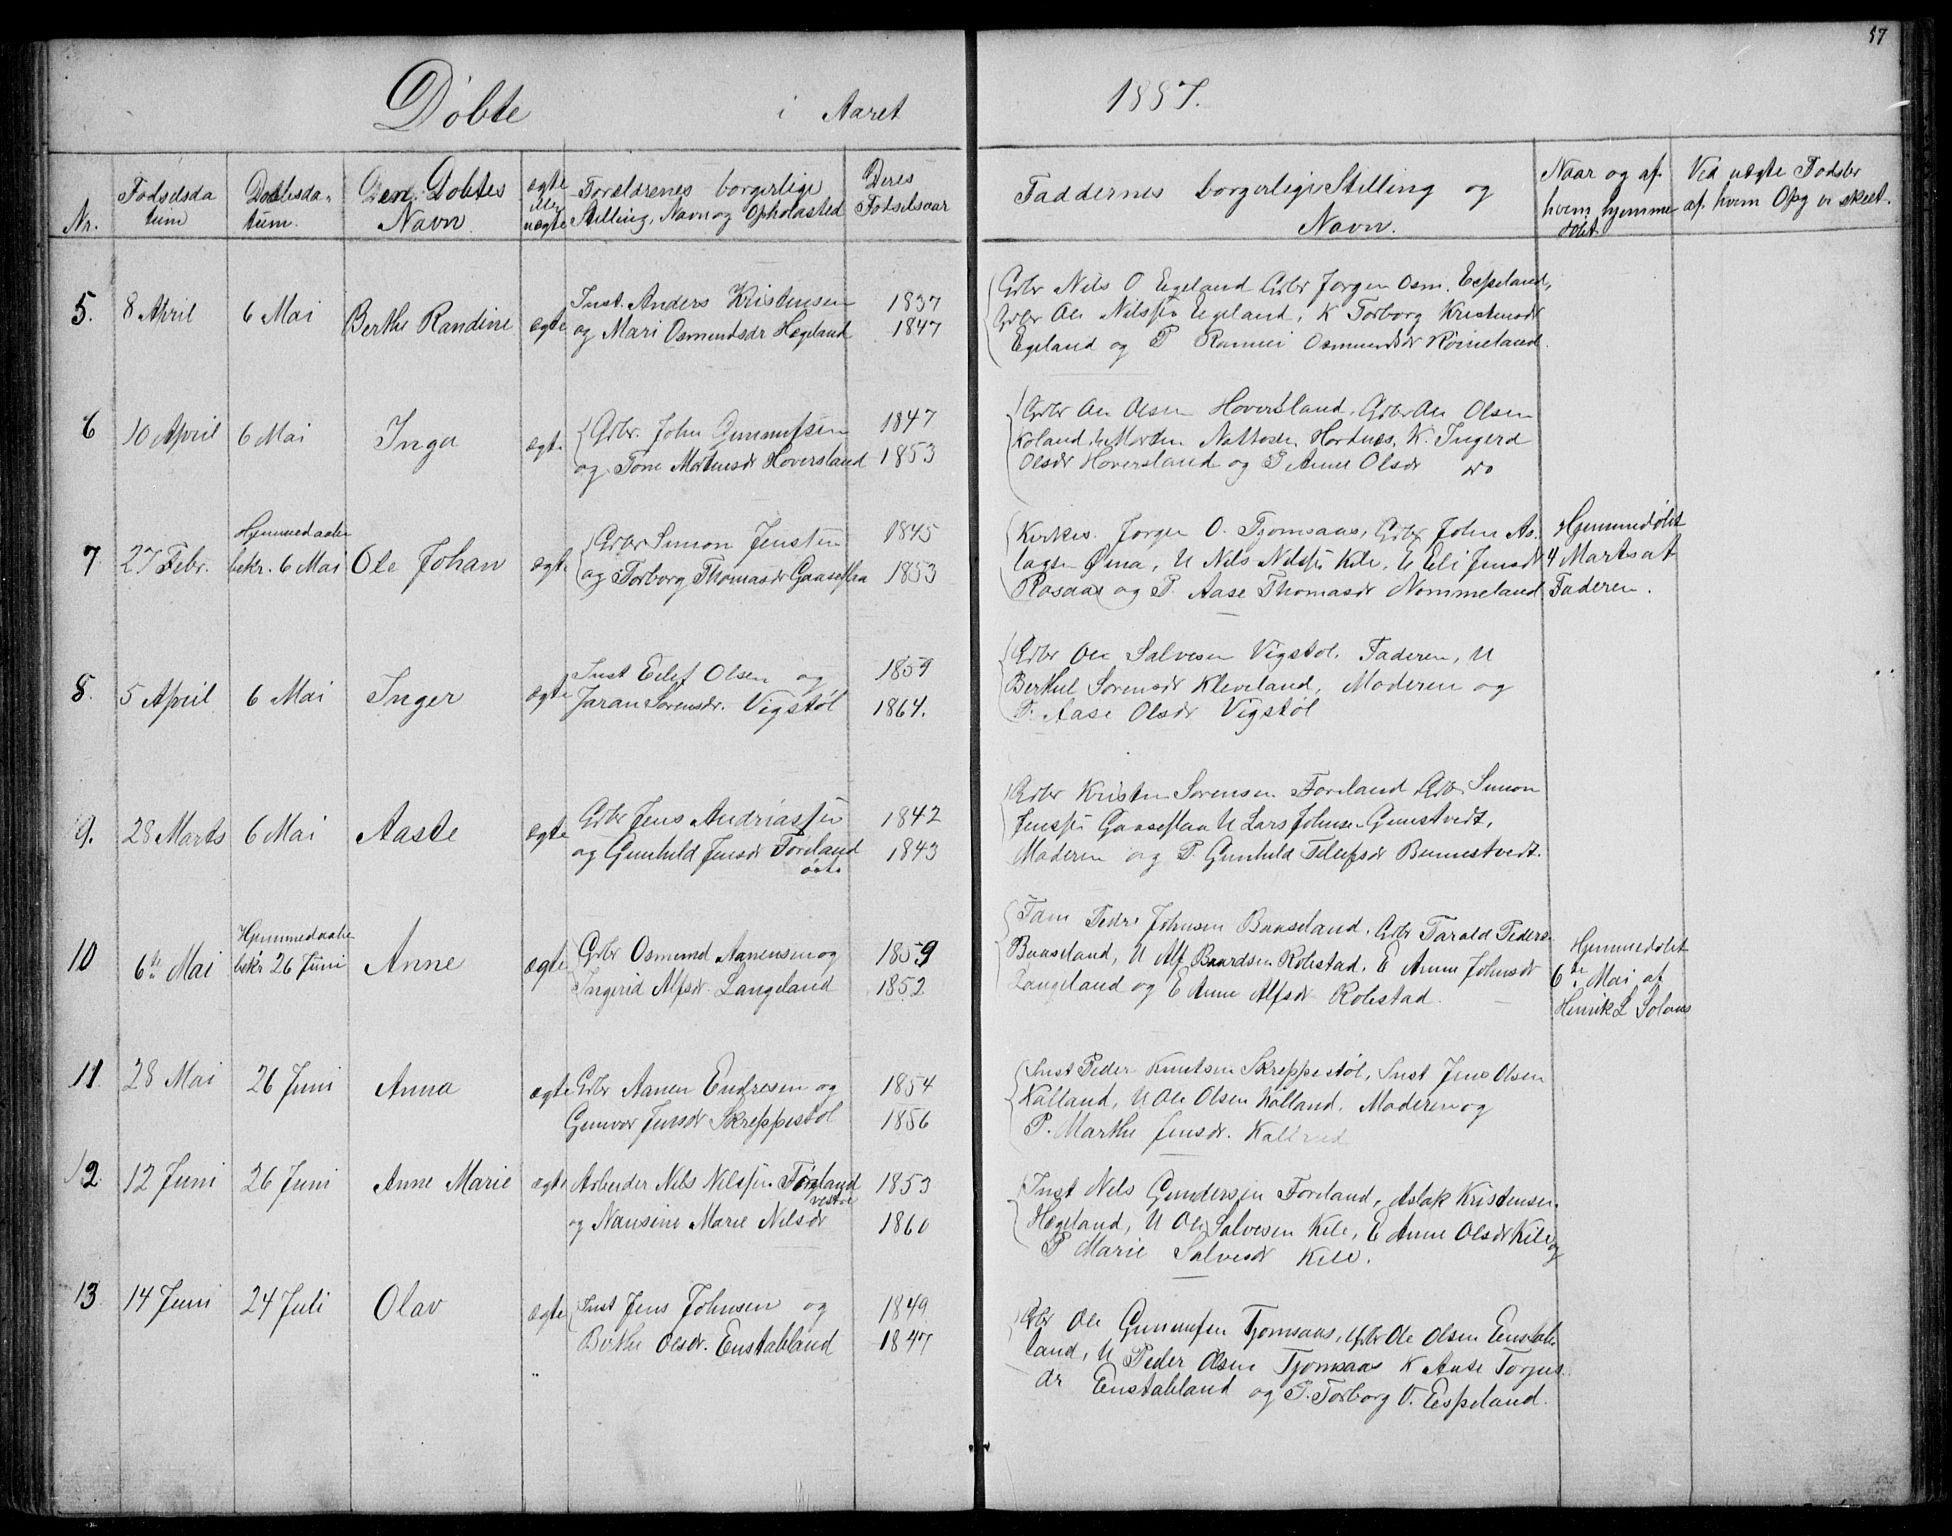 57
Døbte i Aaret 1887.
Nr. Fødselsdatum Daabsdatum. Den Døbtes Navn ægte eller uægte Forældrenes borgerlige Stilling, Navn og Opholdsted Deres Fødselsaar Faddernes borgerlige Stilling og Navn. Naar og af hvem hjemmedøbt Ved uægte Fødsler af hvem Opg er skeet.
5. 8 April 6 Mai Berthe Randine ægte Inst. Anders Kristensen 1837
og Mari Osmundsdr Hægeland 1847
Grbr Nils O Egeland Grbr Jørgen Osm. Espeland,
Grbr Ole Nilssen Egeland, K Torborg Kristensdr
Egeland og P Osmundsdr
6 10 April 6 Mai Inga ægte Grbr. John Gunnufsen 1847
og Tone Mortensdr Hoversland 1853
Grbr Ole Olsen Hoversland, Grbr Ole Olsen
Koland, Morten Hordnes, K. Ingerd
Olsdr Hoversland og P Anne Olsdr do
7 27 Febr. Hjemmedaaben
bekr. 6 Mai Ole Johan ægte Grbr Simon Jensen 1845
og Torborg Thomasdr Gaaseflaa 1853
Kirkes. Jørgen O. Tjomsaas, Grbr John As-
lagsen Øina, U Nils Nilssen Kile, U Eli Jensdr
Røsaas og P. Aase Thomasdr Nommeland
Hjemmedøbt
4 Marts af
Faderen.
8. 5 April 6 Mai Inger ægte Inst Eilef Olsen og 1859
Jøran Sørensdr. Vigstøl 1864.
Grbr Ole Salvesen Vigstøl. Faderen, U
Berthel Sørensdr Kleveland, Moderen og
P. Aase Olsdr Vigstøl
9. 28 Marts 6 Mai Aaste ægte Grbr Jens Andriassen 1842
og Gunhild Jensdr Føreland 1843
østre
Grbr Kristen Sørensen Føreland, Grbr Simon
Jenssen Gaaseflaa U Lars Johnsen Gumstvedt,
Moderen og P. Gunhild Tellefsdr
10 6te Mai Hjemmedaaben
bekr 26 Juni Anne ægte Grbr Osmund Aanensen og 1859
Ingerid Alfsdr. Langeland 1852
Fdm Peder Johnsen Baaseland, Grbr Tarald Peders.
Baaseland, U Alf Baardsen Robstad, E Anne Johnsdr
Langeland og E Anne Alfsdr Robstad.
Hjemmedøbt
6te Mai af
Henrik L Solaas
11. 28 Mai 26 Juni Anna ægte Grbr Aanen Endresen og 1854
Gunvor Jensdr Skreppestøl 1856
Inst Peder Knutsen Skreppestøl, Inst Jens Olsen
Kalland, U Ole Olsen Kalland, Moderen og
P. Marthe Jensdr. Kalland
12. 12 Juni 26 Juni Anne Marie ægte Arbeider Nils Nilssen Føreland 1853
vestre
og Nansine Marie Nilsdr 1860
Inst Nels Gundersen Føreland, Aslak Kristensen
Hægeland, U Ole Salvesen Kile, E Anne Olsdr Kile og
P Marie Salvesdr Kile.
13 14 Juni 24 Juli Olav ægte Inst Jens Johnsen og 1849
Birthe Olsdr. Eustabland 1847
Grbr Ole Gunnufsen Tjomsaas, Grbr Ole Olsen Eustab-
land, U Peder Olsen Tjomsaas K Aase Torjus-
dr Eustabland og P. Torborg O. Espeland.